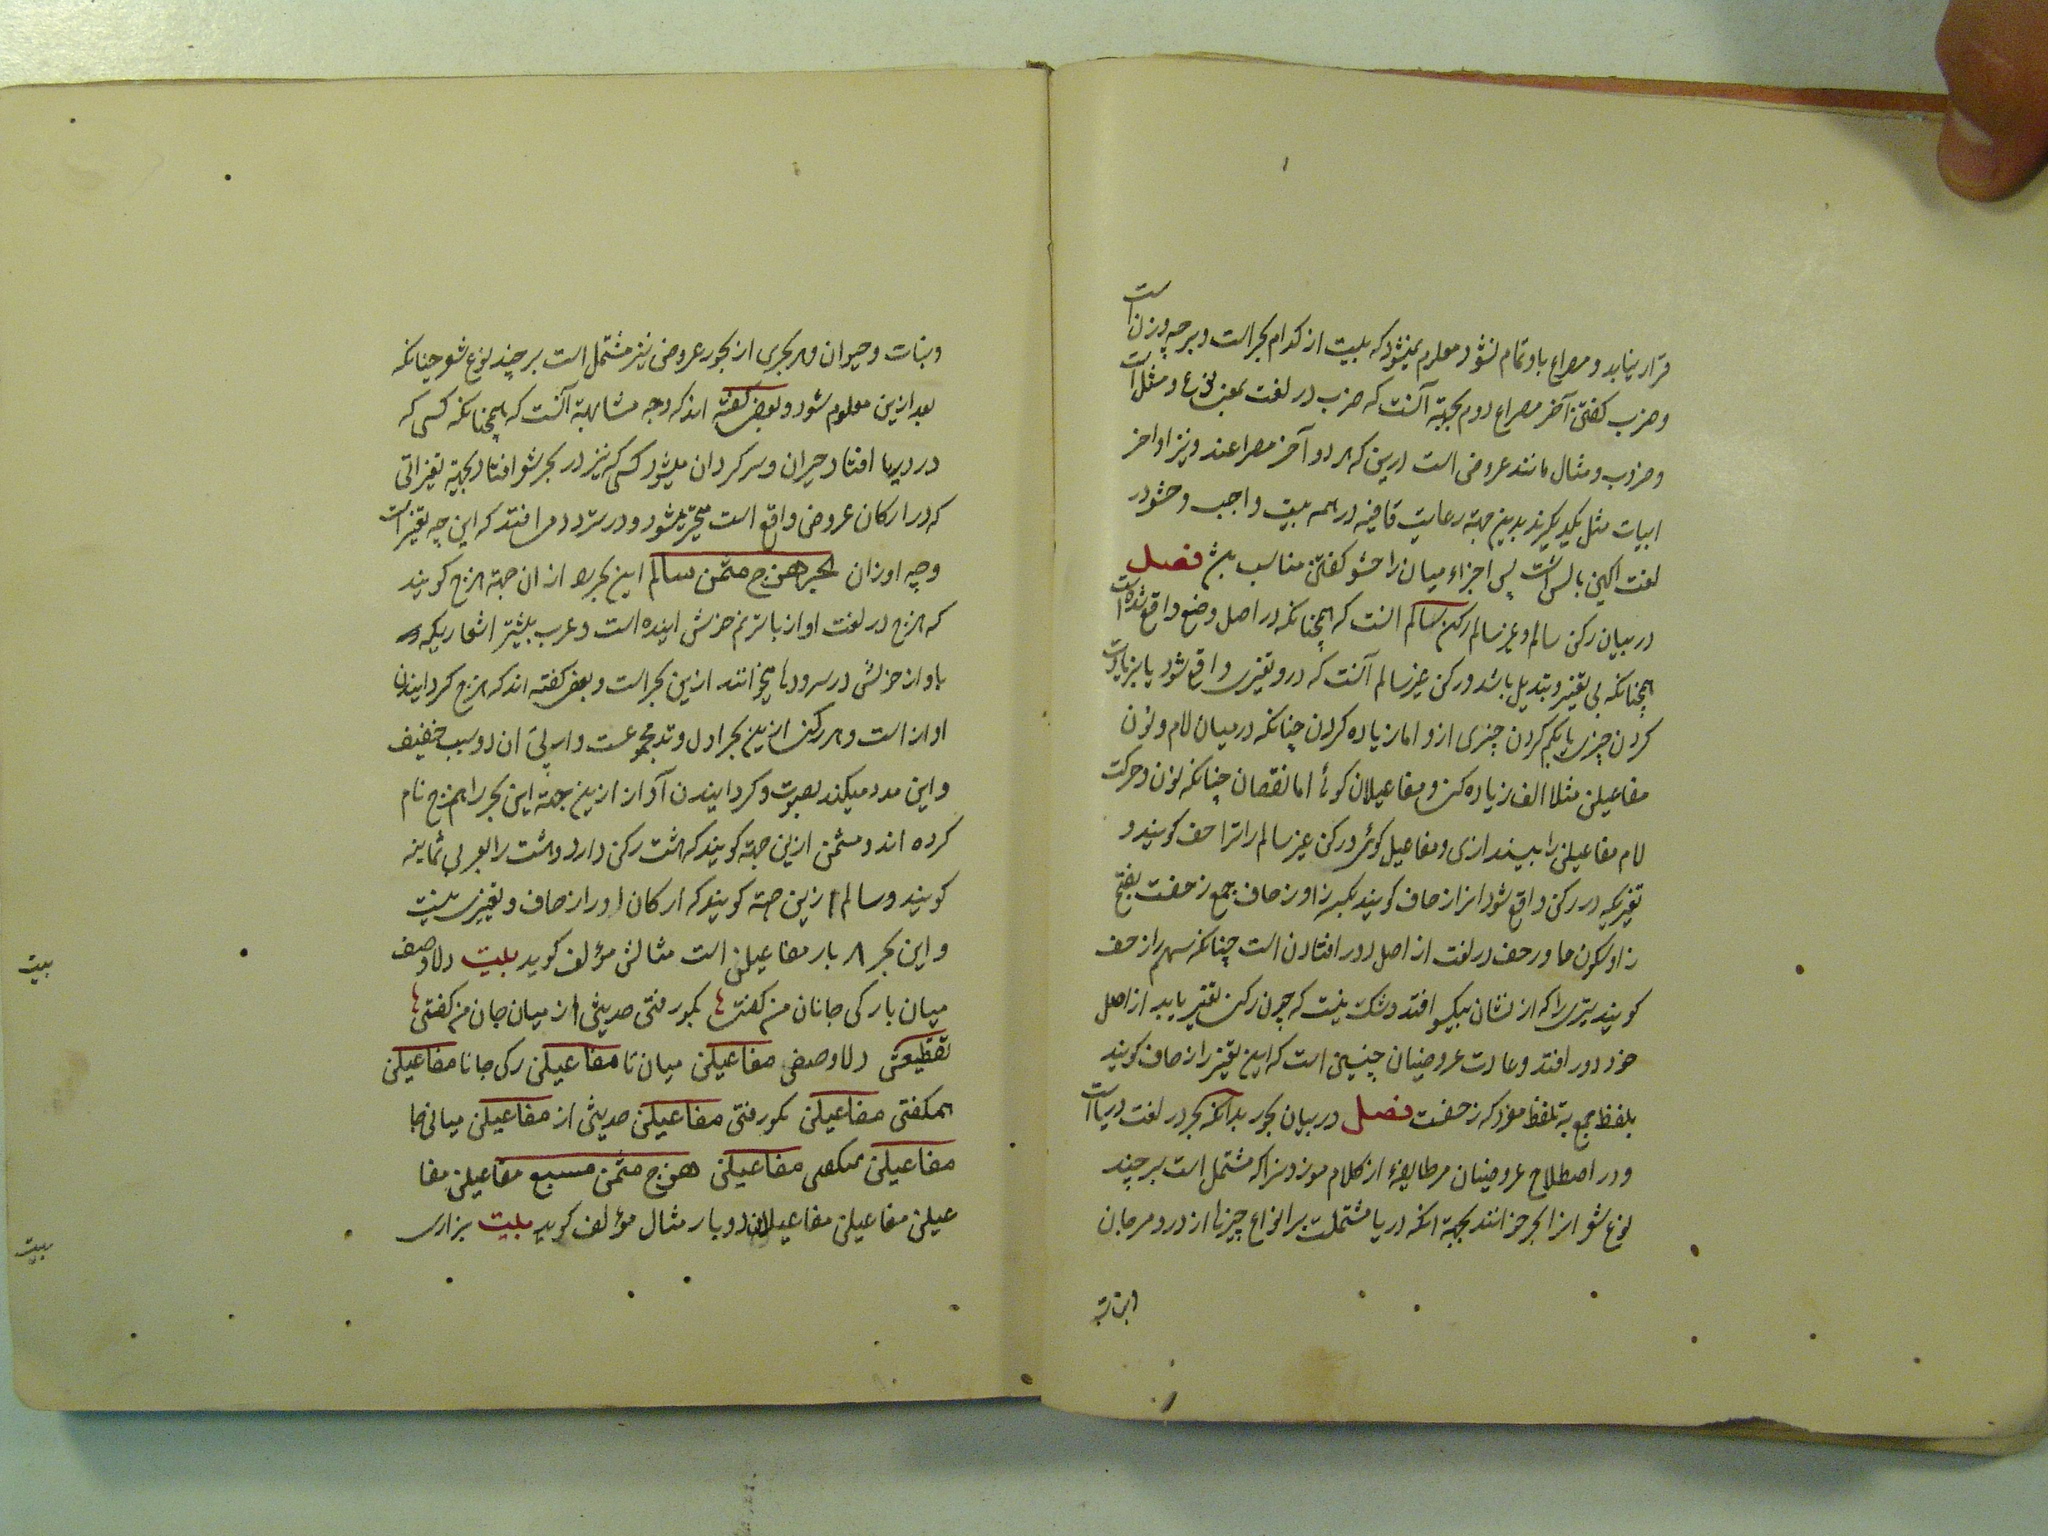 قرار نیابد و مصراع باو تمام نشود معلوم نمیشود که بیت از کدام بحر است و بر چه وزن است
و ضرب گفتن آخر مصراع دوم بجهة آنست که ضرب در لغت بمعنی نوع و مثل است
و ضروب و مثال مانند عروض است درین که هر دو آخر مصراعند و نیز اواخر
ابیات مثل یکدیگرند بدین جهة رعایت قافیه در همه بیت واجب و حشو در
لغت آکین بالش است پس اجزاء میان را حشو گفتن مناسب بود فصل
در بیان رکن سالم و غیر سالم رکن سالم آنست که همچنانکه در اصل وضع واقع شده است
همچنانکه بی تغییر و تبدیل باشد و رکن غیر سالم آنست که درو تغییری واقع شود یا بزیادت
کردن چیزی یا بکم کردن چیزی ازو اما زیاده کردن چنانکه در میان لام و نون
مفاعیلن مثلا الف زیاده کنی و مفاعیلان کوئی اما نقصان چنانکه نون و حرکت
لام مفاعیلن را بیندازی و مفاعیل کوئی و رکن غیر سالم را مزاحف کویند و
تغییریکه در رکن واقع شود انرا زحاف کویند بکسر زا و زحاف جمع زحفست بفتح
زا و سکون حا و زحف در لغت از اصل دور افتادن است چنانکه سهم زاحف
کویند تیری را که از نشان بیکسو افتد و شک نیست که چون رکن تغییر یابد از اصل
خود دور افتد و عادت عروضیان چنین است که این تغییر را زحاف کویند
بلفظ جمع نه بلفظ مفرد که زحفست فصل در بیان بحور بدانکه بحر در لغت دریا است
و در اصطلاح عروضیان هر طایفهٔ از کلام موزون را که مشتمل است بر چند
نوع شعر انرا بحر خوانند بجهة آنکه دریا مشتملست بر انواع چیزها از در و مرجان
و نبات و حیوان و هر بحری از بحور عروض نیز مشتمل است بر چند نوع شعر چنانکه
بعد ازین معلوم شود و بعضی گفته اند که وجه مشابهة آنست که همچنانکه کسی که
در دریا افتاد حیران و سرکردان میشود کسی که نیز در بحر شعر افتاد بجهة تغیراتی
که در ارکان عروض واقع است متحیر میشود و در تردد می افتد که این چه تغیر است
و چه اوزان بحر هزج مثمن سالم این بحر را از ان جهة هزج کویند
که هزج در لغت اواز با ترنم خوش اینده است و عرب بیشتر اشعار یکه
باواز خوش در سرودها میخوانند ازین بحر است و بعضی گفته اند که هزج کردایندن
اواز است و هر رکن ازین بحر اول وتد مجموعست و از پی ان دو سبب خفیف
و این مدد میکند بصوت و کردایندن آواز ازین جهة این بحر را هزج نام
کرده اند و مثمن ازین جهة کویند که هشت رکن دارد و هشت را بعربی ثمانیه
کویند و سالم ازین جهة کویند که ارکان او را زحاف و تغییری نیست
و این بحر ۸ بار مفاعیلن است مثالش مؤلف کوید بیت دلا وصف
میان نازکی جانان من گفتی نکو رفتی حدیثی از میان جان من گفتی
تقطیعش دلا وصفی مفاعیلن میان نا مفاعیلن زکی جانا مفاعیلن
نمنکفتی مفاعیلن نکو رفتی مفاعیلن حدیثی از مفاعیلن میانی جا
مفاعیلن نمنکفتی مفاعیلن هزج مثمن مسبع مفاعیلن مفا
عیلن مفاعیلن مفاعیلان دو بار مثال مؤلف کوید بیت بزاری
بیت
بیت